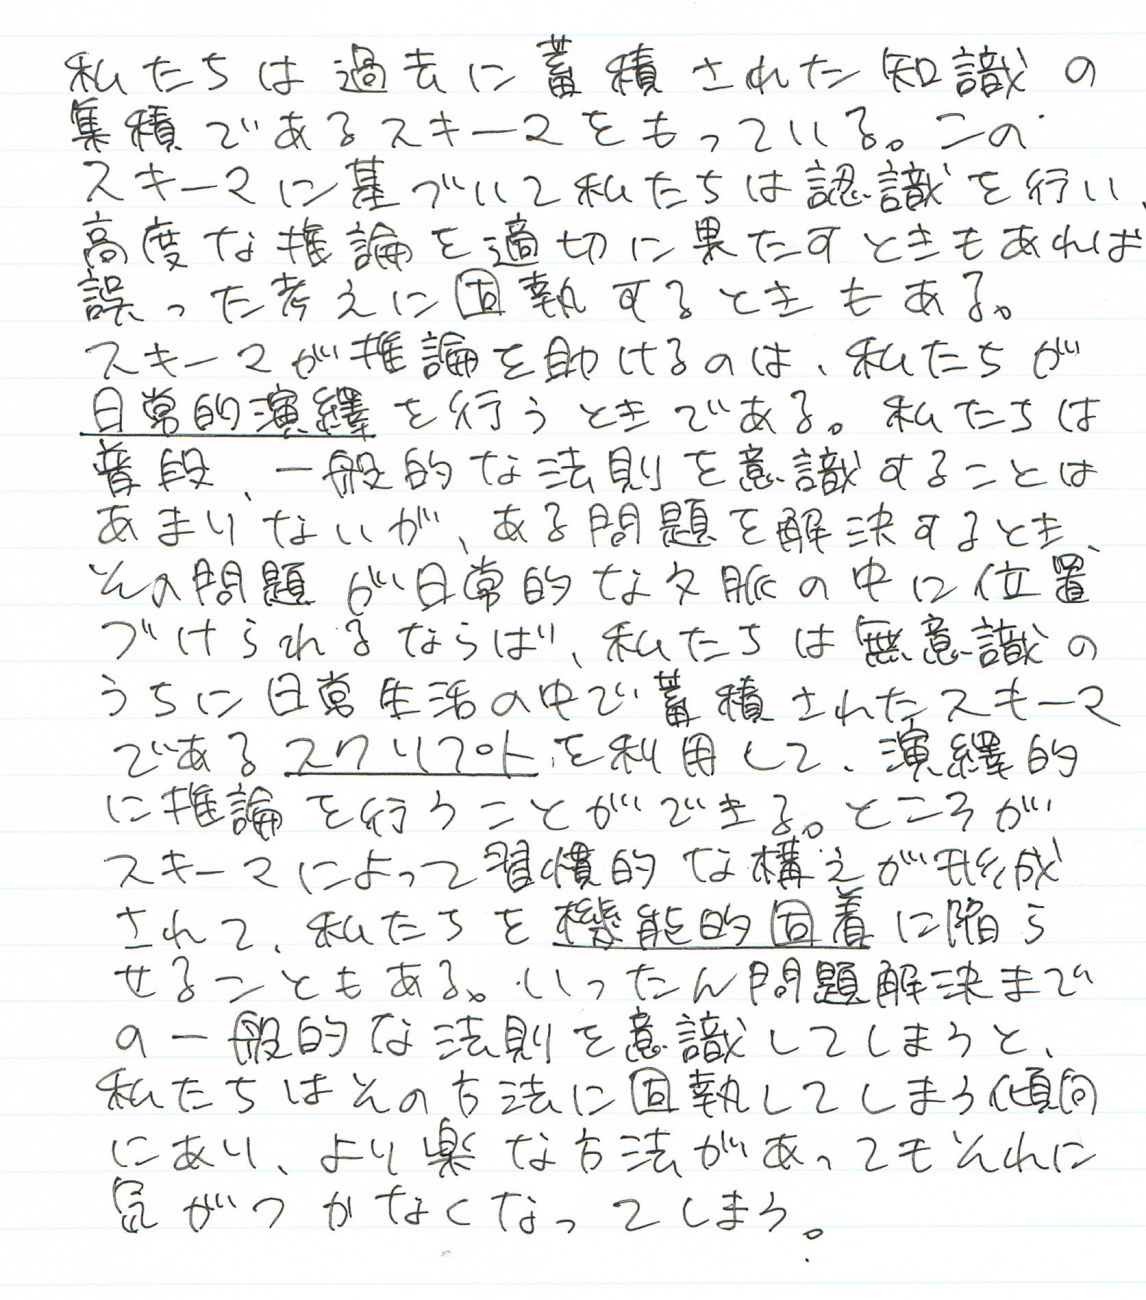 私たちは過去に蓄積された知識の
集積であるスキーマをもっている。この
スキーマに基づいて私たちは認識を行い、
高度な推論を適切に果たすときもあれば
誤った考えに固執するときもある。
スキーマが推論を助けるのは、私たちが
日常的演繹を行うときである。私たちは
普段、一般的な法則を意識することは
あまりないが、ある問題を解決するとき、
その問題が日常的な文脈の中に位置
づけられるならば、私たちは無意識の
うちに日常生活の中で蓄積されたスキーマ
であるスクリプトを利用して、演繹的
に推論を行うことができる。ところが
スキーマによって習慣的な構えが形成
されて、私たちを機能的固着に陥ら
せることもある。いったん問題解決まで
の一般的な法則を意識してしまうと、
私たちはその方法に固執してしまう傾向
にあり、より楽な方法があってもそれに
気がつかなくなってしまう。